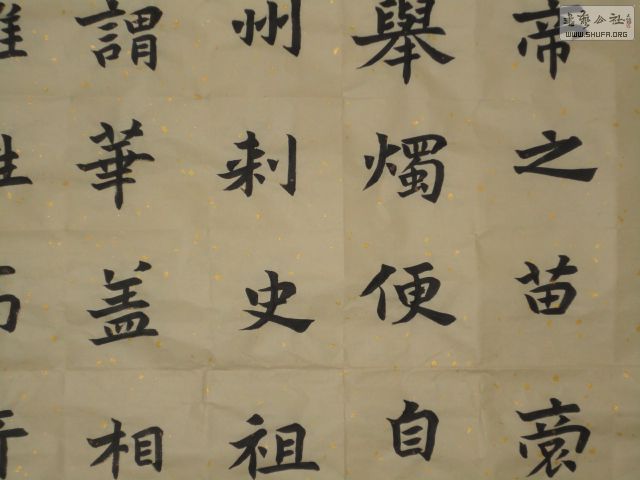 帝之苗裔
舉燭便自
州刺史祖
謂華盖相
公社
WWW.SHUFA.ORG